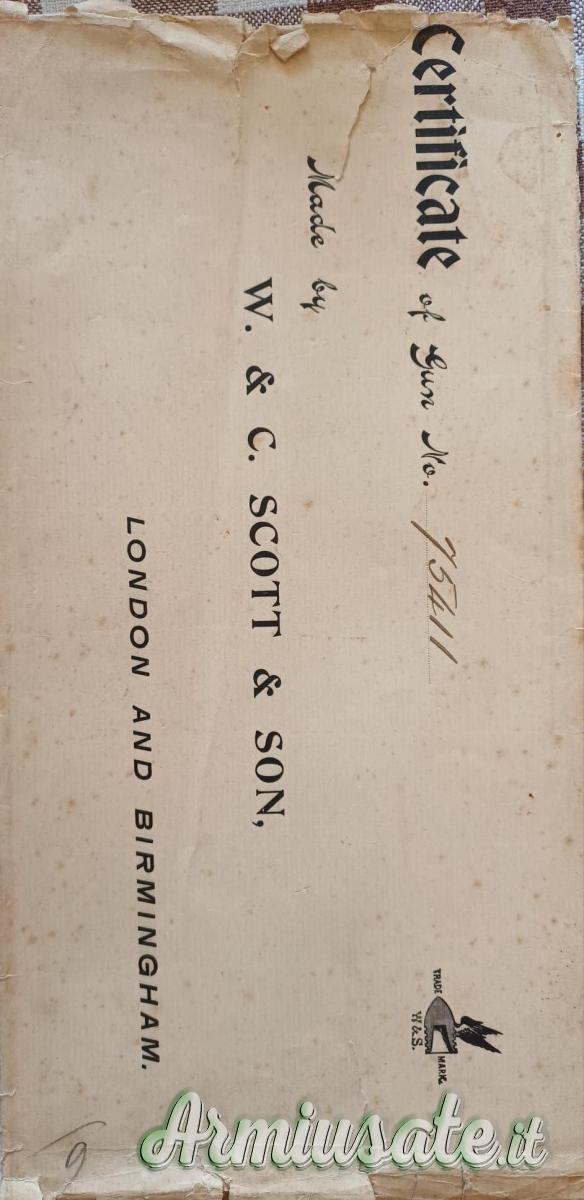 Certificate of Gun No. 75411
Made by
W. & C. SCOTT & SON,
LONDON AND BIRMINGHAM.
TRADE MARK.
W & S.
Armiusate.it